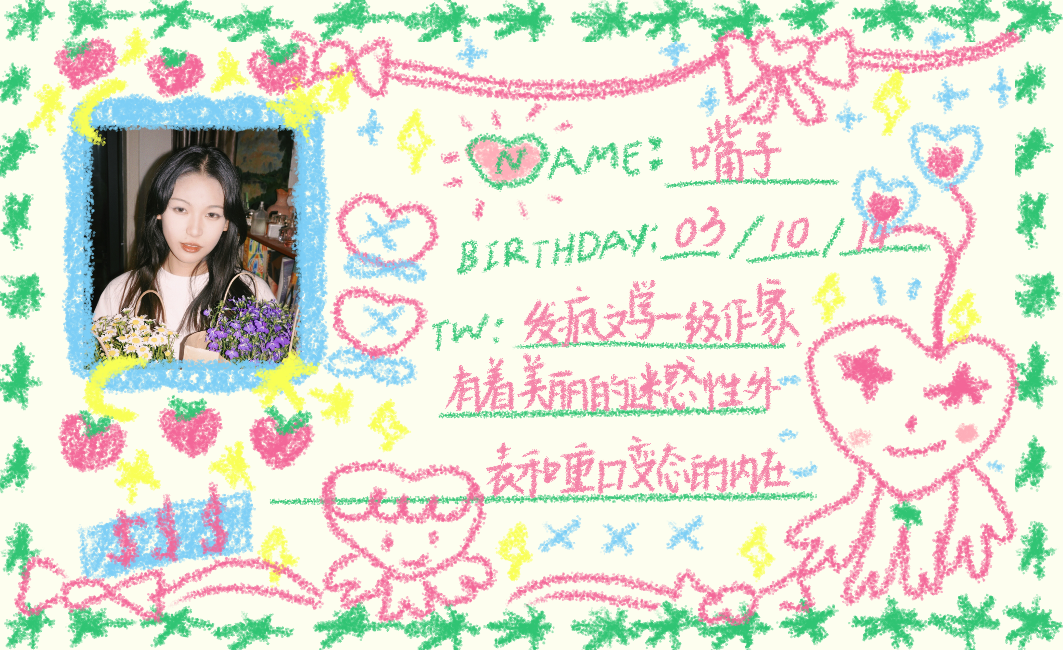 NAME: 嘴子
BIRTHDAY: 03/10/14
TW: 发疯文学一级作家,
有着美丽的迷惑性外
表和重口变态的内在